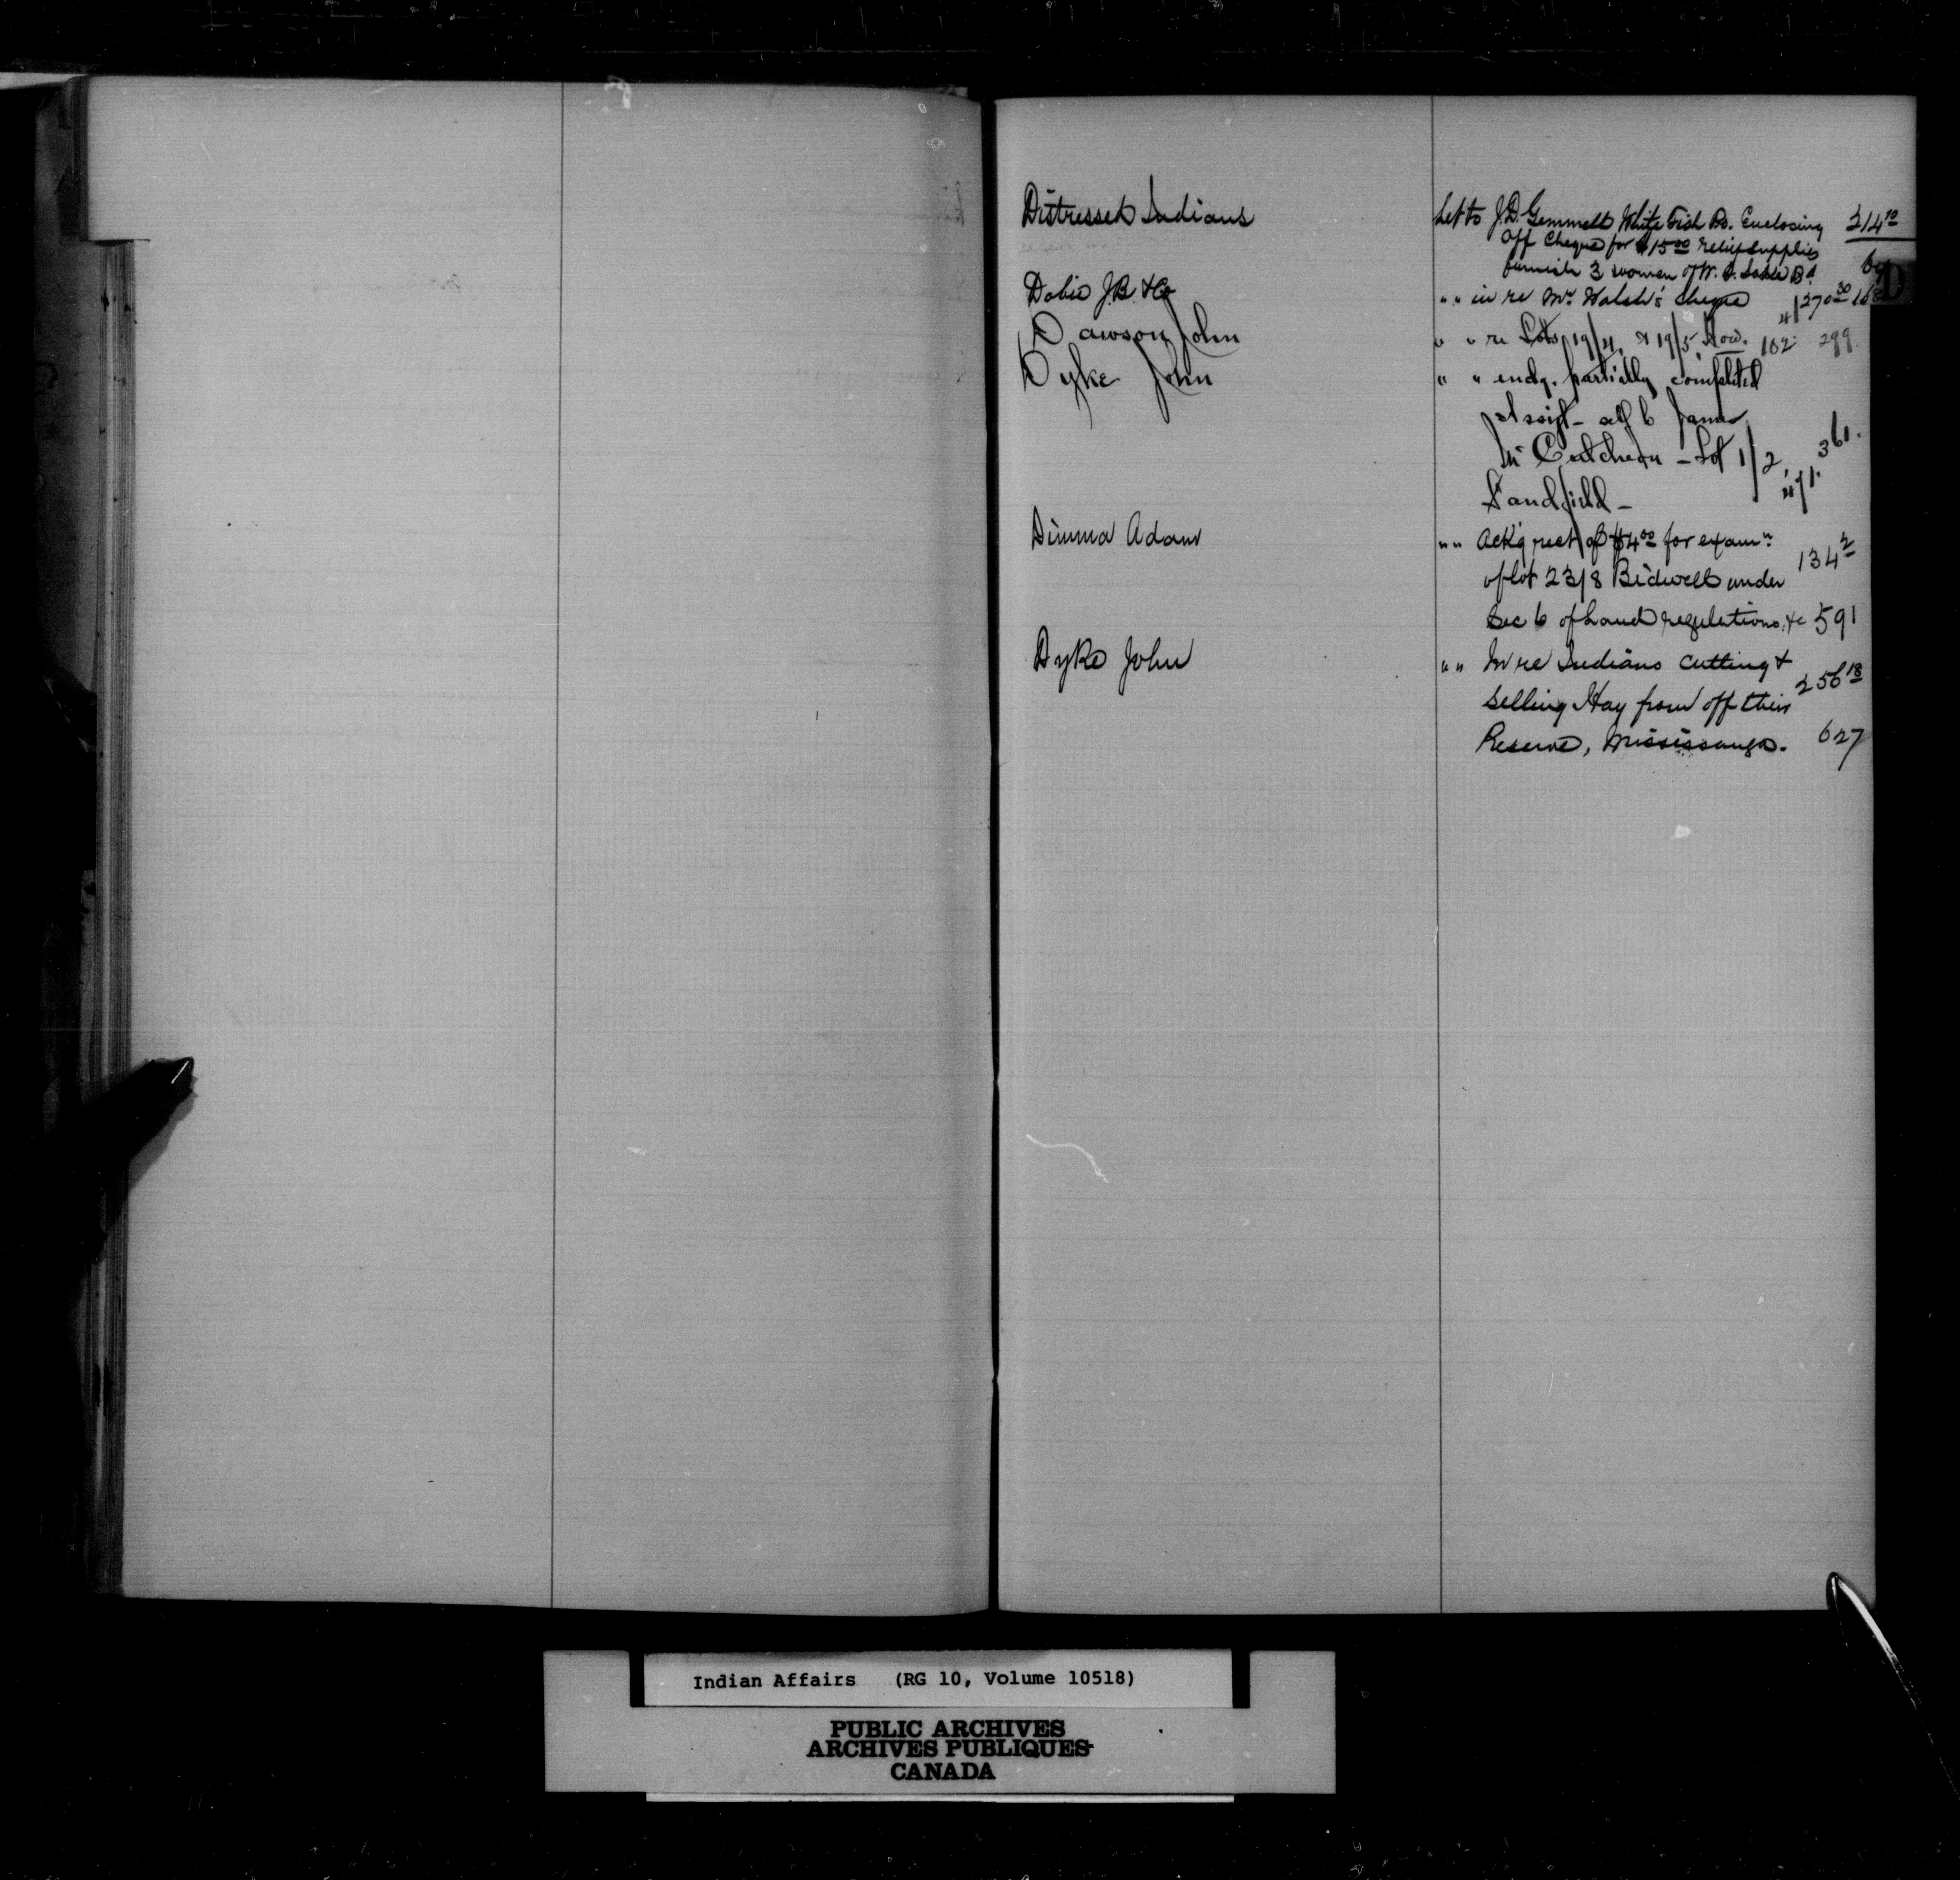 Distressed Indians
Let to J.D. Gemmell White Fish Rv. Enclosing 214 10
Off Cheque for $15 00 relief supplies
furnish 3 women of W. S. Bd
Dobie J.B. & Co
" " in re Mr. Walsh's cheque 4/270 30 168
Dawson John
" " re Lots 19/4, & 19/5 How. 102 299
Dyke John
" " encg. partially completed
assigt - James
McCutcheon - Lot 1/2, 361.
Sandfield - 471.
Dimma Adam
" " Ackg rect of $4 00 for exam n
of lot 23/8 Bidwell under 134 2
Sec 6 of Land regulations &c 591
Dyke John
" " In re Indians cutting &
selling Hay from off their 256 18
Reserve, Mississauga. 627
D
Indian Affairs (RG 10, Volume 10518)
PUBLIC ARCHIVES
ARCHIVES PUBLIQUES
CANADA